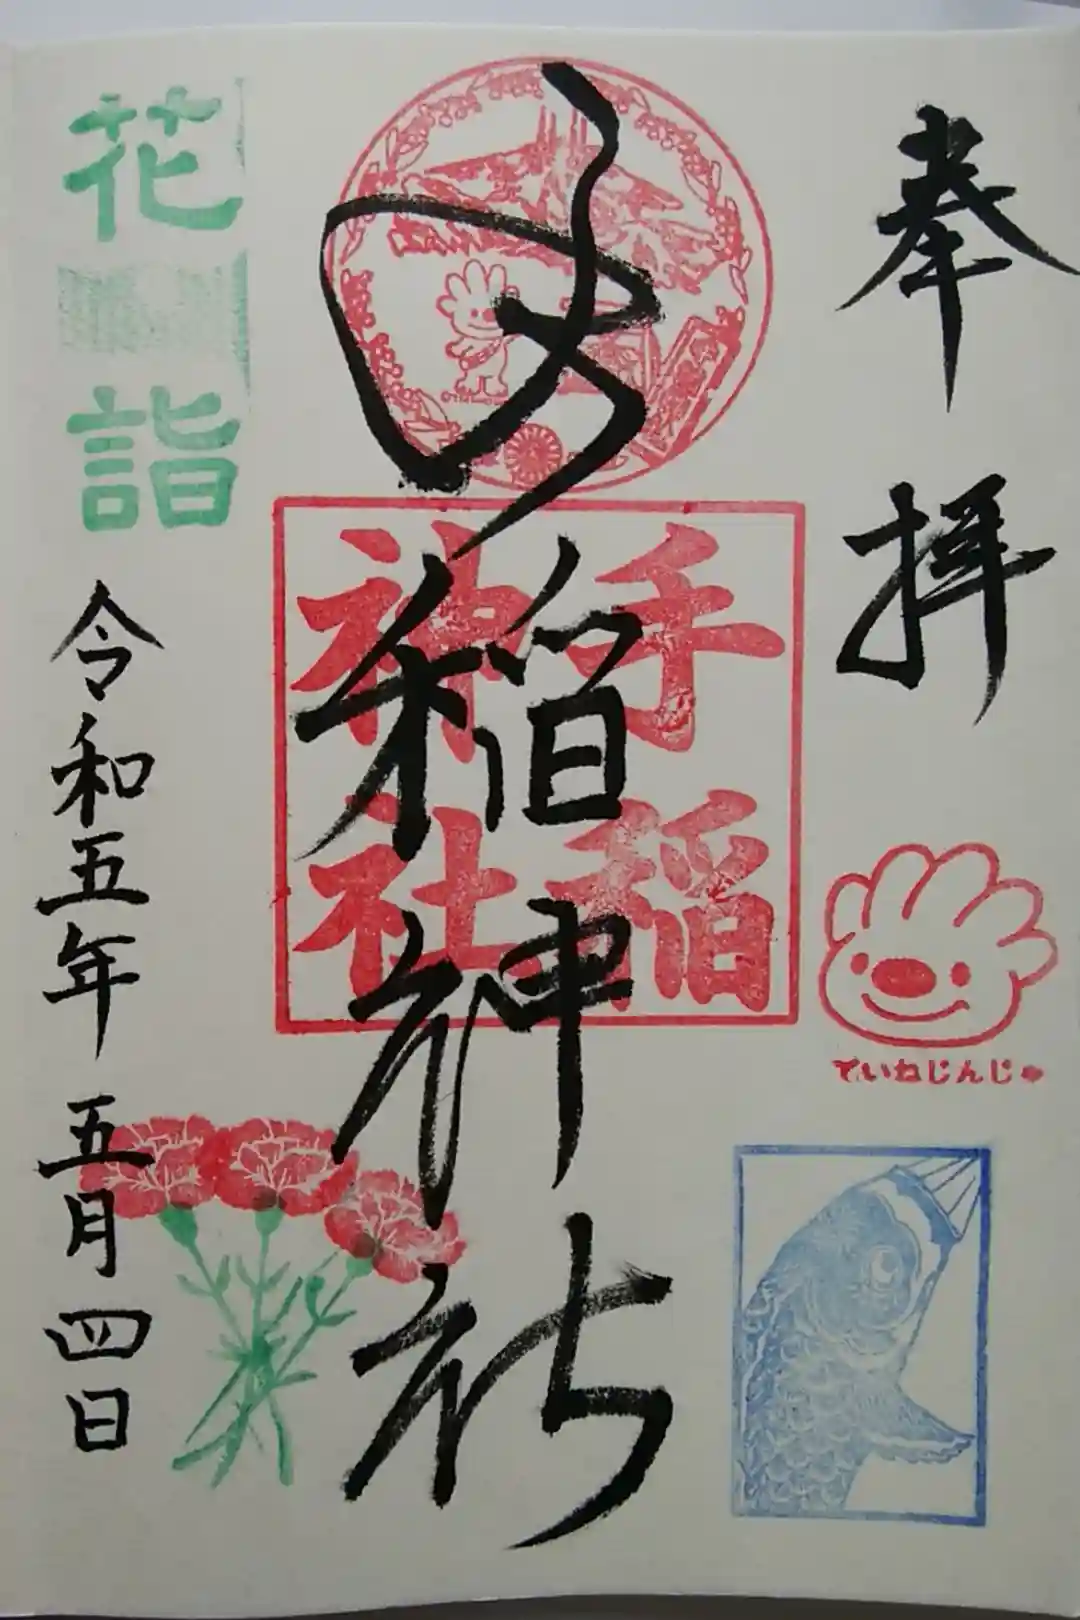 奉拝
ていねじんじゃ
手稲神社
手稲
神社
花詣
令和五年五月四日